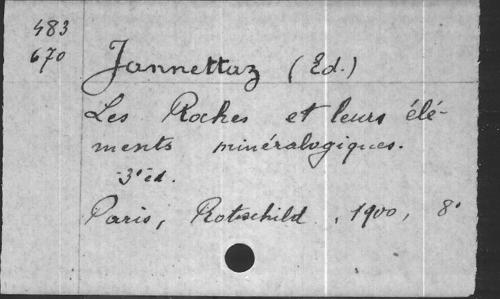 483
670
Jannettaz (Ed.)
Les Roches et leurs élé-
ments minéralogiques.
3e éd.
Paris, Rotschild, 1900, 8°